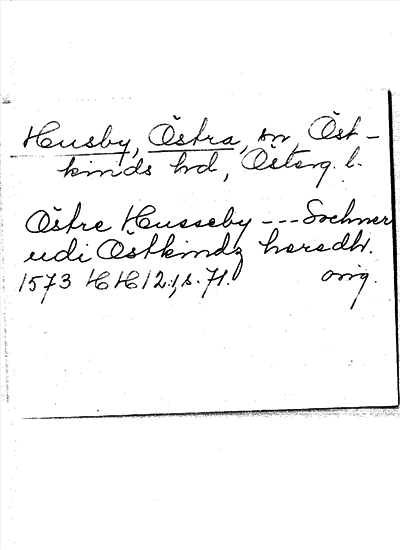 Husby, Östra, sn, Öst-
kinds hd, Österg. l.
Östre Husseby --- Sochner
udi Östkindz heredh.
1573 HH 12:1, s. 71. orig.